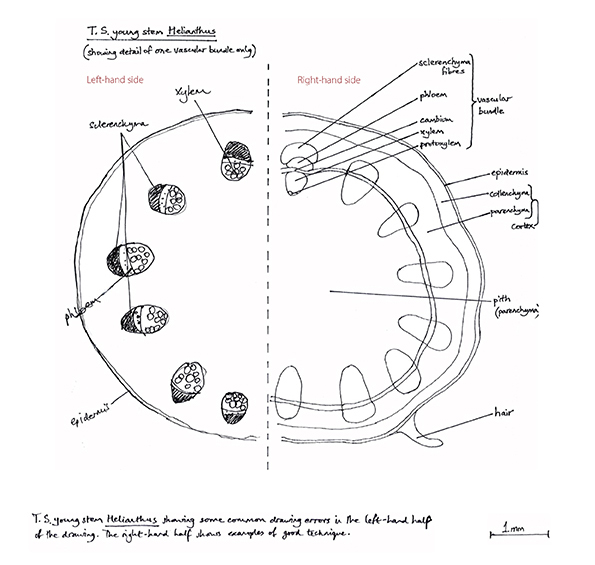 T.S. young stem Helianthus
(showing detail of one vascular bundle only)
Left-hand side
Right-hand side
xylem
sclerenchyma
phloem
epidermis
sclerenchyma
fibres
phloem
cambium
xylem
protoxylem
vascular
bundle
epidermis
collenchyma
parenchyma
cortex
pith
(parenchyma)
hair
T.S. young stem Helianthus showing some common drawing errors in the left-hand half
of the drawing. The right-hand half shows examples of good technique.
1mm